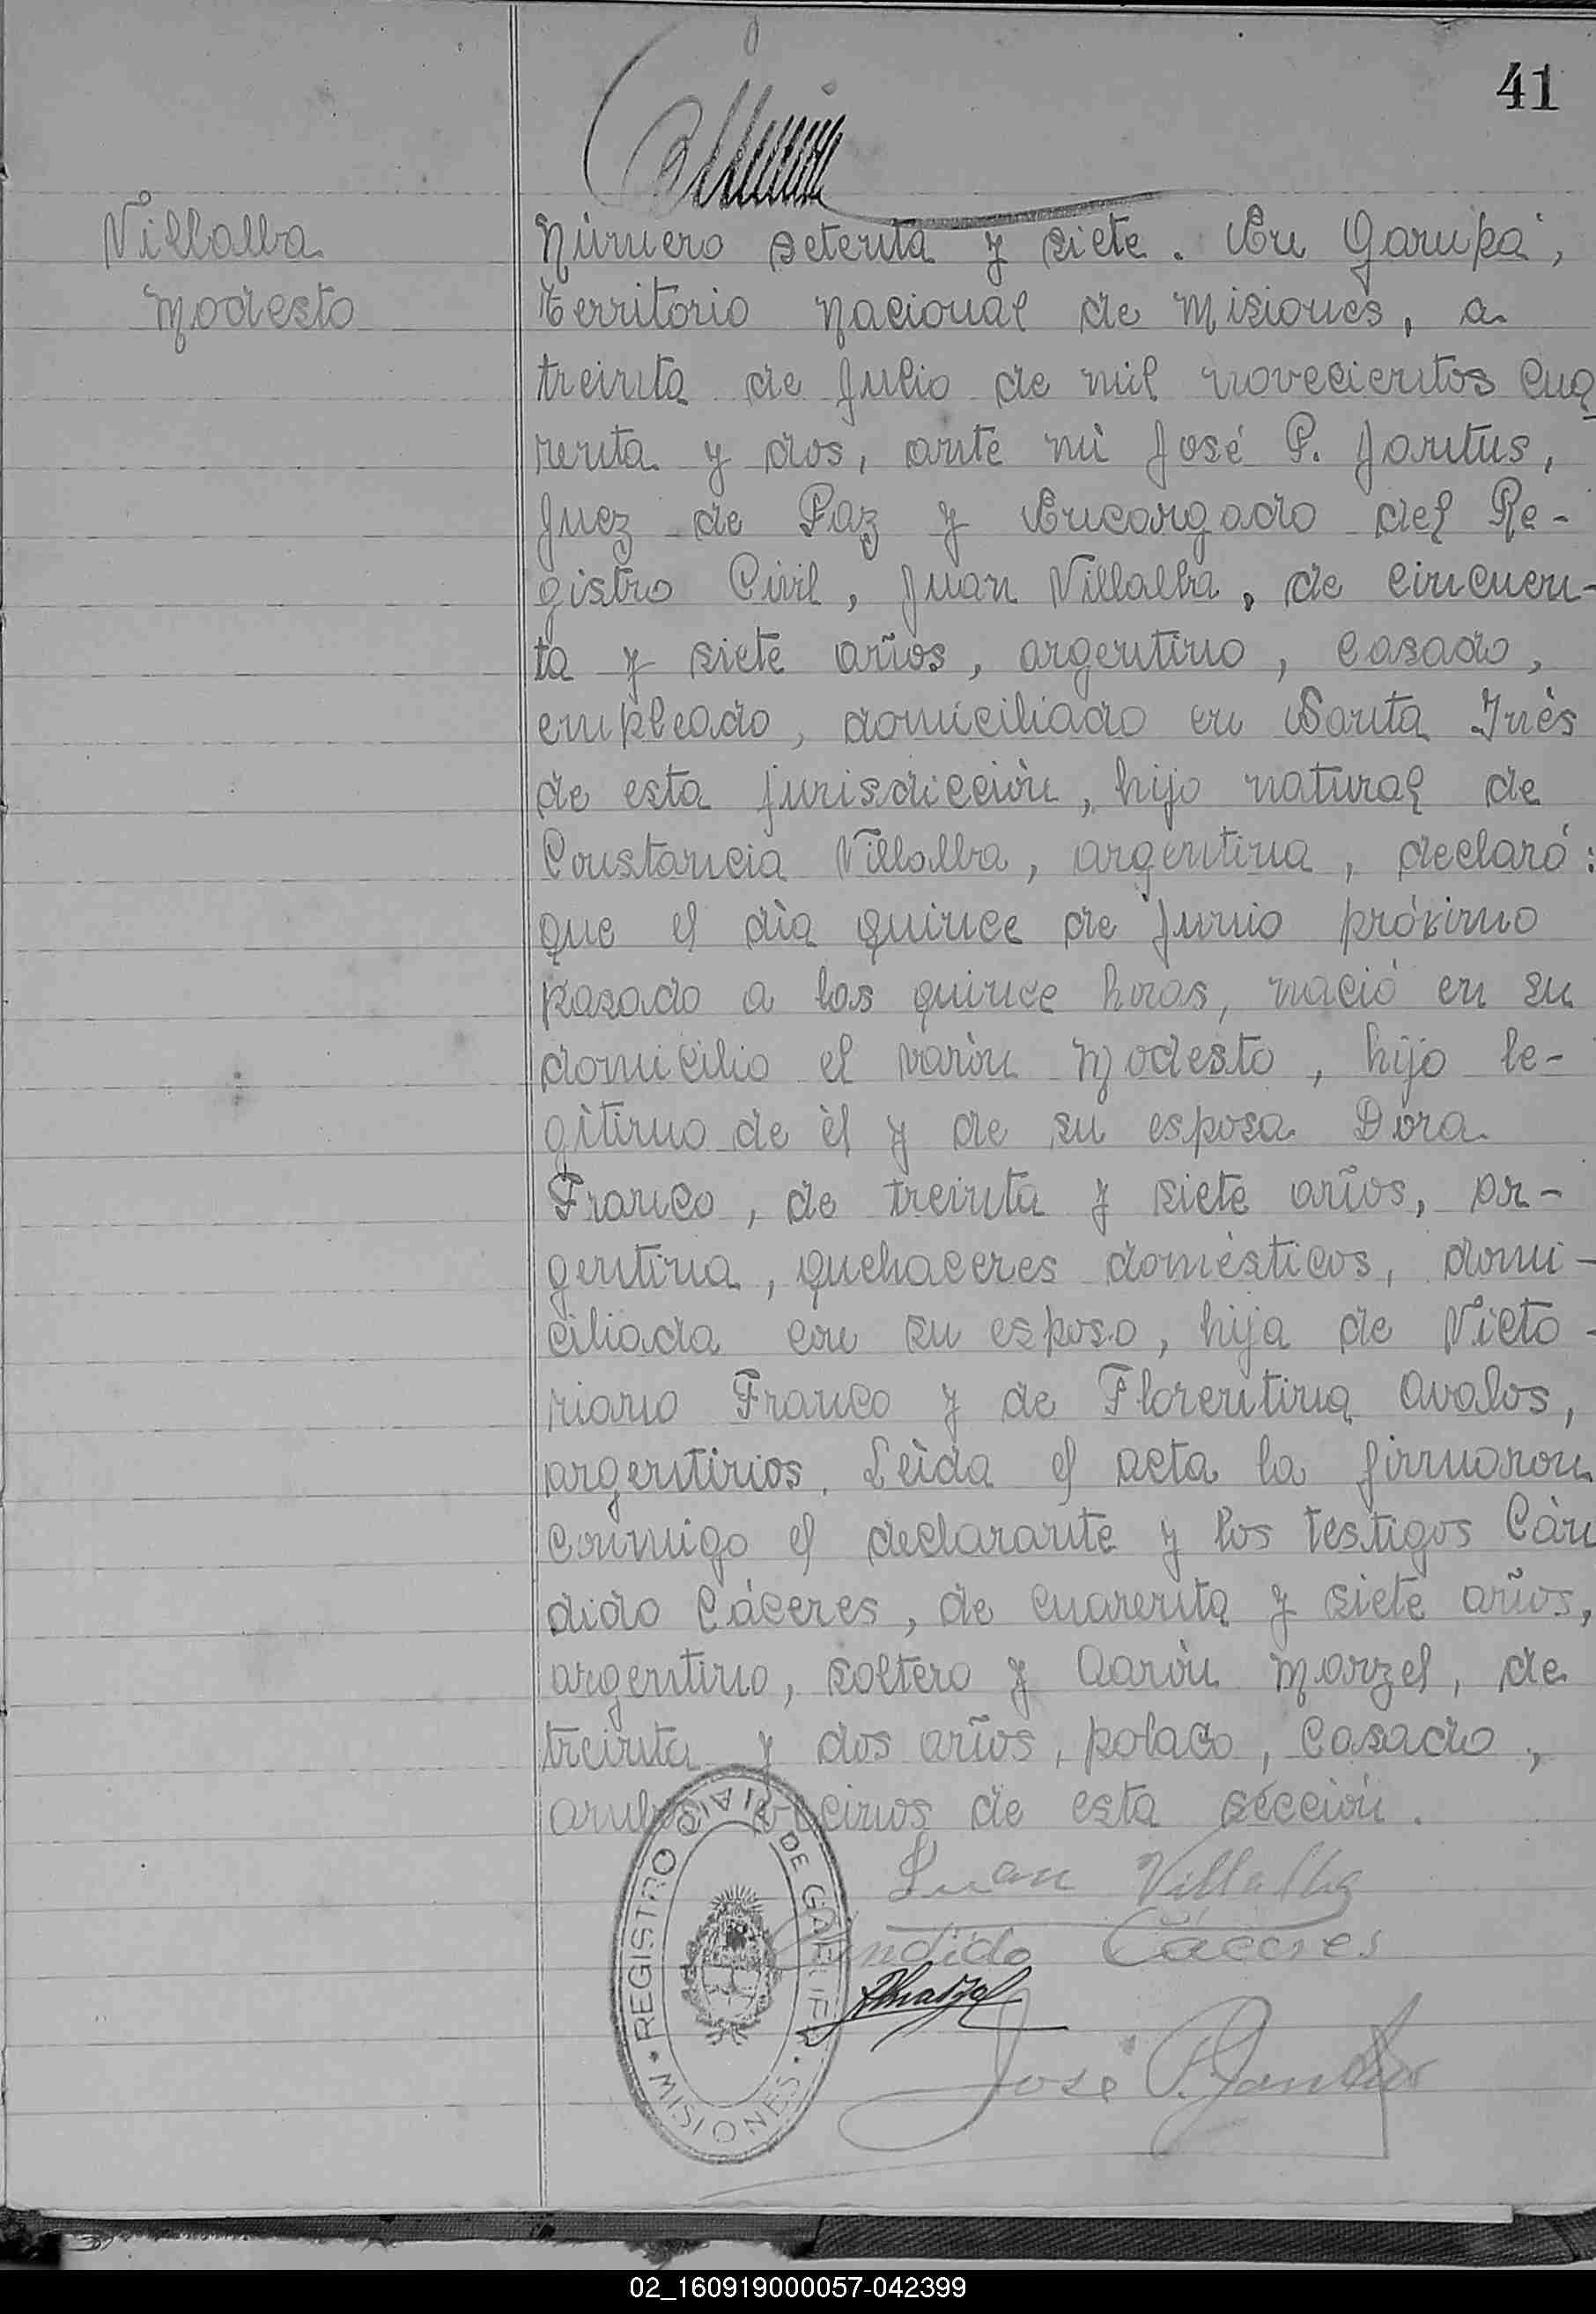 41
Villalba
Modesto
Número setenta y siete. En Garupá,
territorio nacional de Misiones, a
treinta de Julio de mil novecientos cua
renta y dos, ante mi José P. Jantus,
Juez de Paz y Encargado del Re-
gistro Civil, Juan Villalba, de cincuen-
ta y siete años, argentino, casado,
empleado, domiciliado en Santa Inés
de esta jurisdicción, hijo natural de
Constancia Villalba, argentina, declaró:
que el día quince de Junio próximo
pasado a las quince horas, nació en su
domicilio el varón Modesto, hijo le-
gìtimo de èl y de su esposa Dora
Franco, de treinta y siete años, ar-
gentina, quehaceres domésticos, domi-
ciliada con su esposo, hija de Victo-
riano Franco y de Florentina Avalos,
argentinos. Leìda el acta la firmaron
conmigo el declarante y los testigos Cán
dido Cáceres, de cuarenta y siete años,
argentino, soltero y Aarón Marzel, de
treinta y dos años, polaco, casado,
ambos vecinos de esta sección.
Juan Villalba
Candido Cáceres
José P. Jantus
REGISTRO CIVIL DE GARUPA
MISIONES
02_160919000057-042399